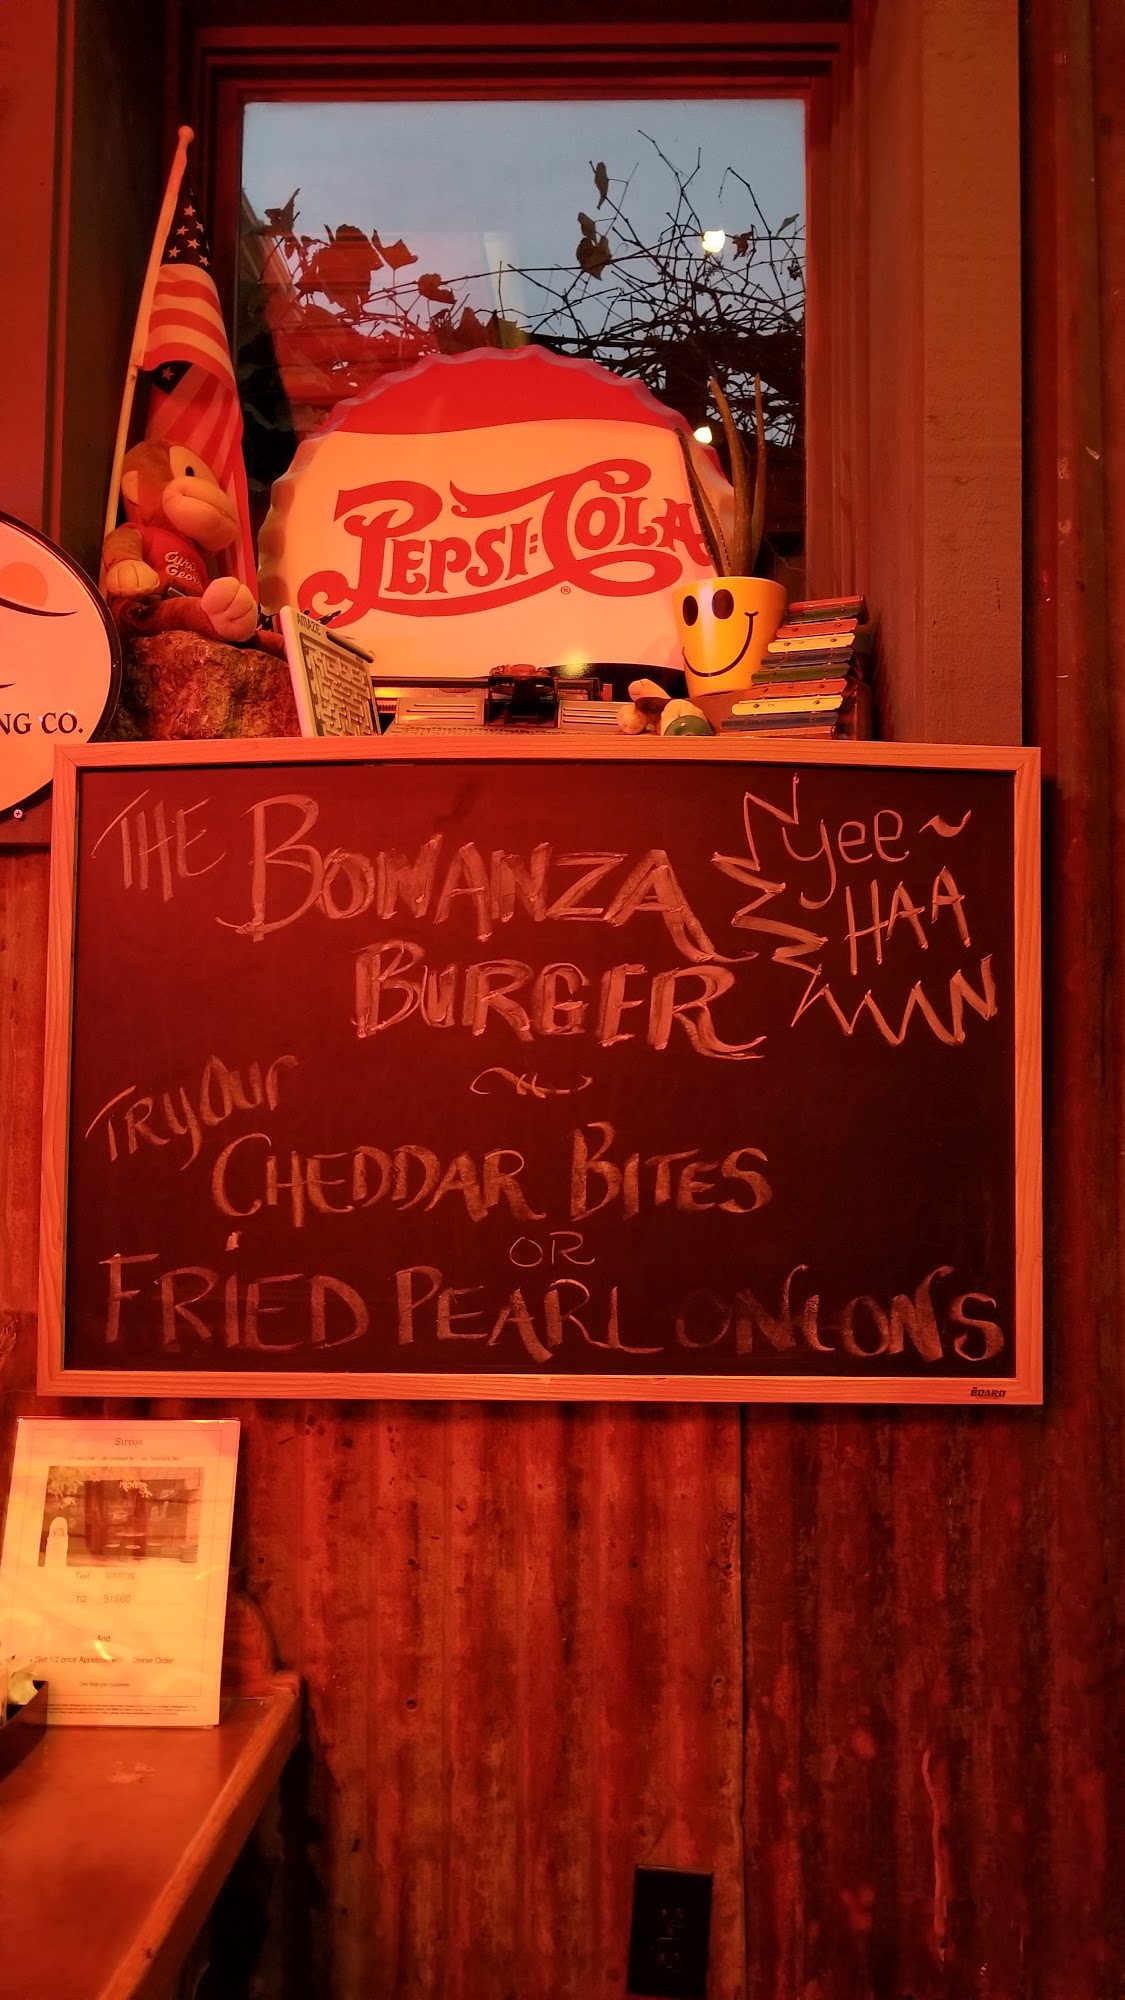 PEPSI:COLA
®
Curious
George
AMAZE
NG CO.
THE BONANZA
BURGER
yee~
HAA
TRY OUR
CHEDDAR BITES
OR
FRIED PEARL ONIONS
BOARD
Sirros
Text SIRROS
TO 51660
And
Get 1/2 price Appetizer Dinner Order